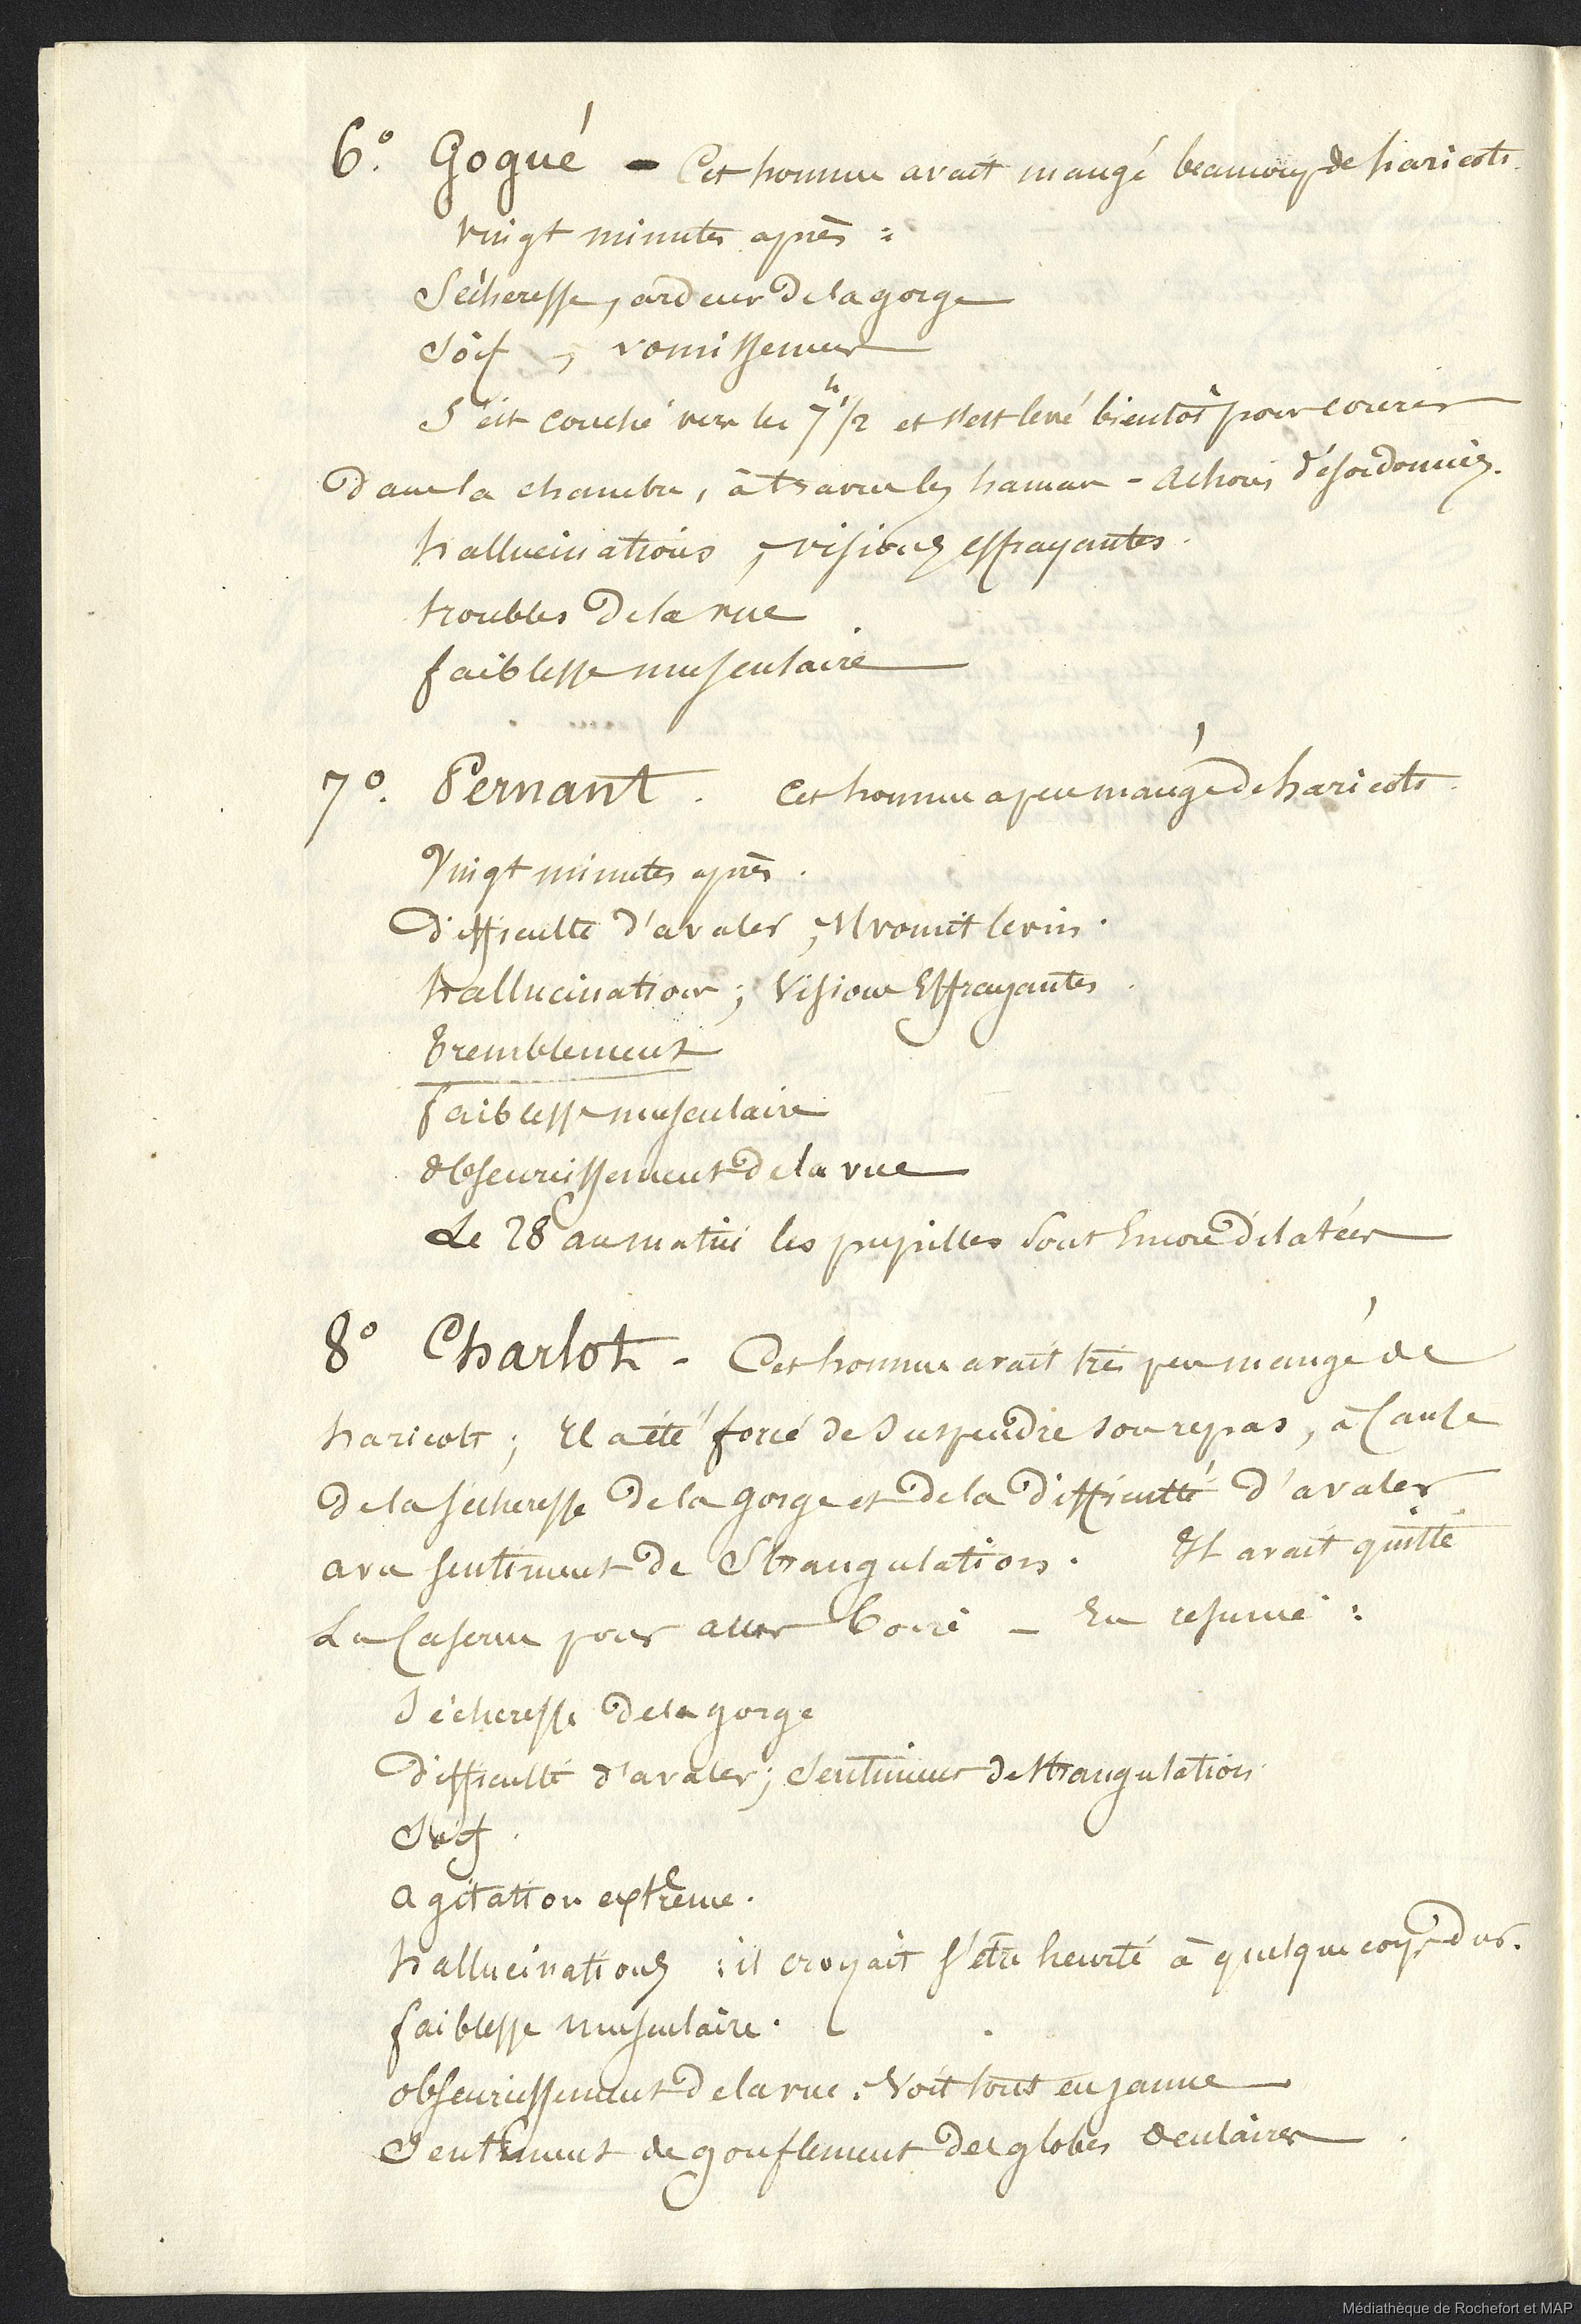 6.° Gogué - Cet homme avait mangé beaucoup de haricots.
Vingt minutes après :
Sécheresse, ardeur de la gorge
Soif, vomissemens
S'est couché vers les 7h 1/2 et s'est levé bientôt pour courir
dans la chambre, à travers les hamacs - Actions désordonnées.
hallucinations, visions effrayantes.
troubles de la vue
faiblesse musculaire
7°. Pernant. Cet homme a peu mangé de haricots.
Vingt minutes après.
Difficulté d'avaler, il vomit le vin.
hallucinations ; Visions Effrayantes.
Tremblement
faiblesse musculaire
obscurcissement de la vue
Le 28 au matin les pupilles sont Encore dilatées
8° Charlot. - Cet homme avait très peu mangé de
haricots ; Il a été forcé de Suspendre son repas, à Cause
de la sécheresse de la gorge et de la difficulté d'avaler
avec sentiment de Strangulation. Il avait quitté
La Caserne pour aller boire - En résumé :
Sécheresse de la gorge
Difficulté d'avaler ; Sentiment de strangulation
Soif.
agitation extrême.
hallucinations : il croyait s'être heurté à quelque corps dur.
faiblesse musculaire.
obscurcissement de la vue. Voit tout en jaune
Sentiment de gonflement des globes oculaires.
Médiathèque de Rochefort et MAP